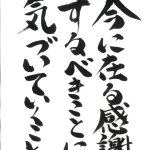 今に在る感謝
するべきことに
気づいていくこ